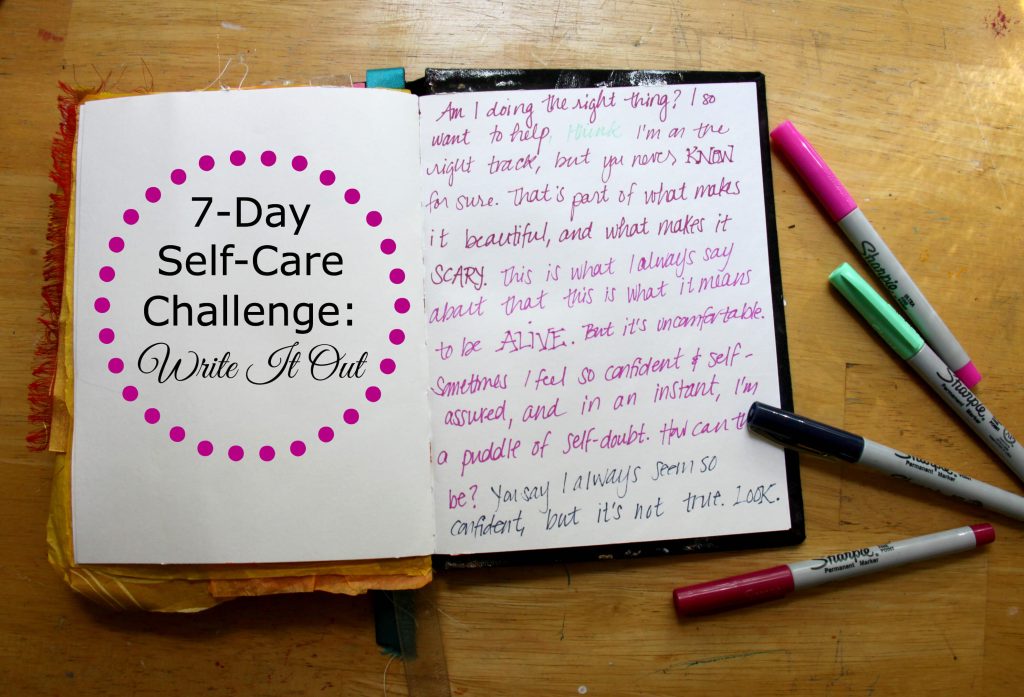 7-Day
Self-Care
Challenge:
Write It Out
Am I doing the right thing? I so
want to help, I think I'm on the
right track, but you never KNOW
for sure. That's part of what makes
it beautiful, and what makes it
SCARY. This is what I always say
about that this is what it means
to be ALIVE. But it's uncomfortable.
Sometimes I feel so confident & self-
assured, and in an instant, I'm
a puddle of self-doubt. How can
be? You say I always seem so
confident, but it's not true. LOOK.
Sharpie
Sharpie
Permanent Marker
Sharpie
Permanent Marker
Sharpie
Permanent Marker